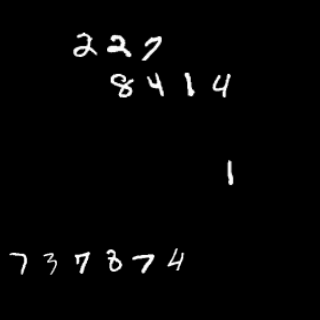 227
8414
1
737874